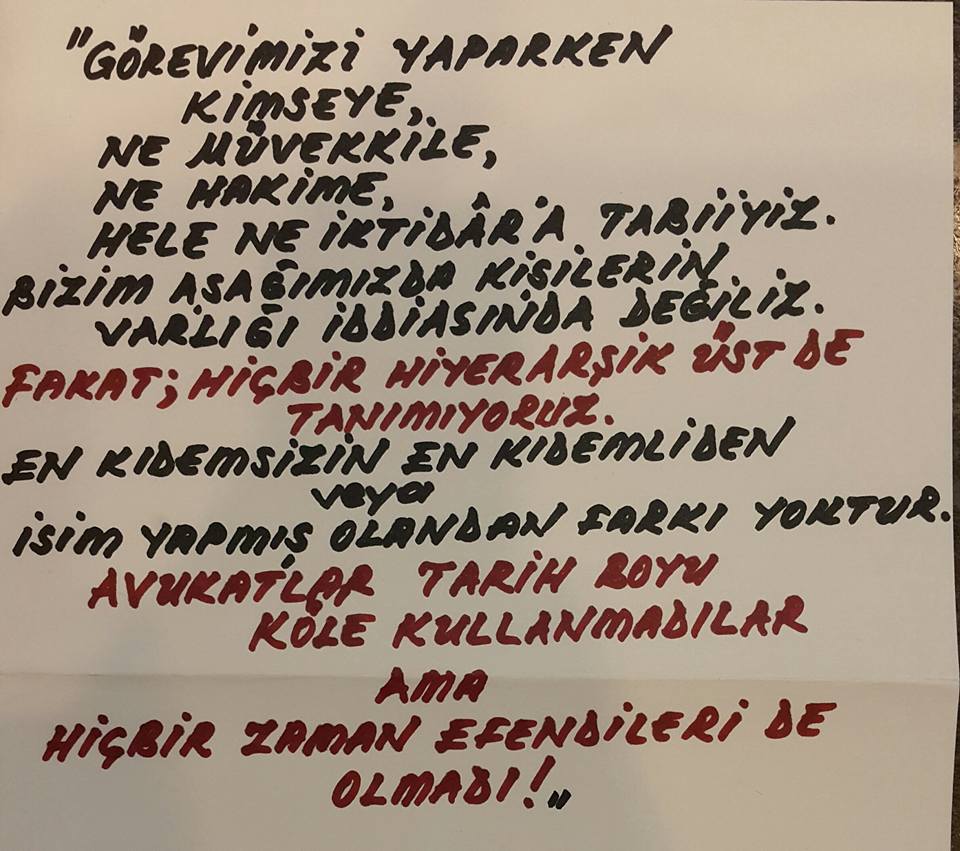 "GÖREVİMİZİ YAPARKEN
KİMSEYE,
NE MÜVEKKİLE,
NE HAKİME,
HELE NE İKTİDÂR'A TABİİYİZ.
BİZİM AŞAĞIMIZDA KİŞİLERİN
VARLIĞI İDDİASINDA DEĞİLİZ.
FAKAT; HİÇBİR HİYERARŞİK ÜST DE
TANIMIYORUZ.
EN KIDEMSİZİN EN KIDEMLİDEN
veya
İSİM YAPMIŞ OLANDAN FARKI YOKTUR.
AVUKATLAR TARİH BOYU
KÖLE KULLANMADILAR
AMA
HİÇBİR ZAMAN EFENDİLERİ DE
OLMADI!„